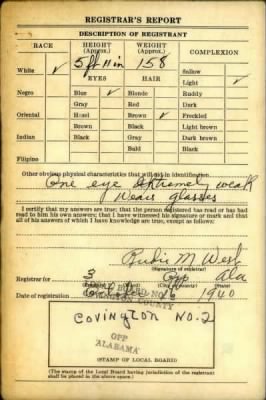 REGISTRAR'S REPORT
DESCRIPTION OF REGISTRANT
RACE HEIGHT (Approx.) WEIGHT (Approx.) COMPLEXION
5 ft 11 in 158
White ✓ Sallow
EYES HAIR Light ✓
Negro Blue ✓ Blonde Ruddy
Gray Red Dark
Oriental Hazel Brown ✓ Freckled
Brown Black Light brown
Indian Black Gray Dark brown
Bald Black
Filipino
Other obvious physical characteristics that will aid in identification
One eye extremely weak
Wears glasses
I certify that my answers are true; that the person registered has read or has had
read to him his own answers; that I have witnessed his signature or mark and that
all of his answers of which I have knowledge are true, except as follows:
M West
(Signature of registrar)
Registrar for 3 Opp Ala
Date of registration 16 1940
COVINGTON COUNTY
Covington No. 2
OPP
ALABAMA
(STAMP OF LOCAL BOARD)
(The stamp of the Local Board having jurisdiction of the registrant
shall be placed in the above space.)